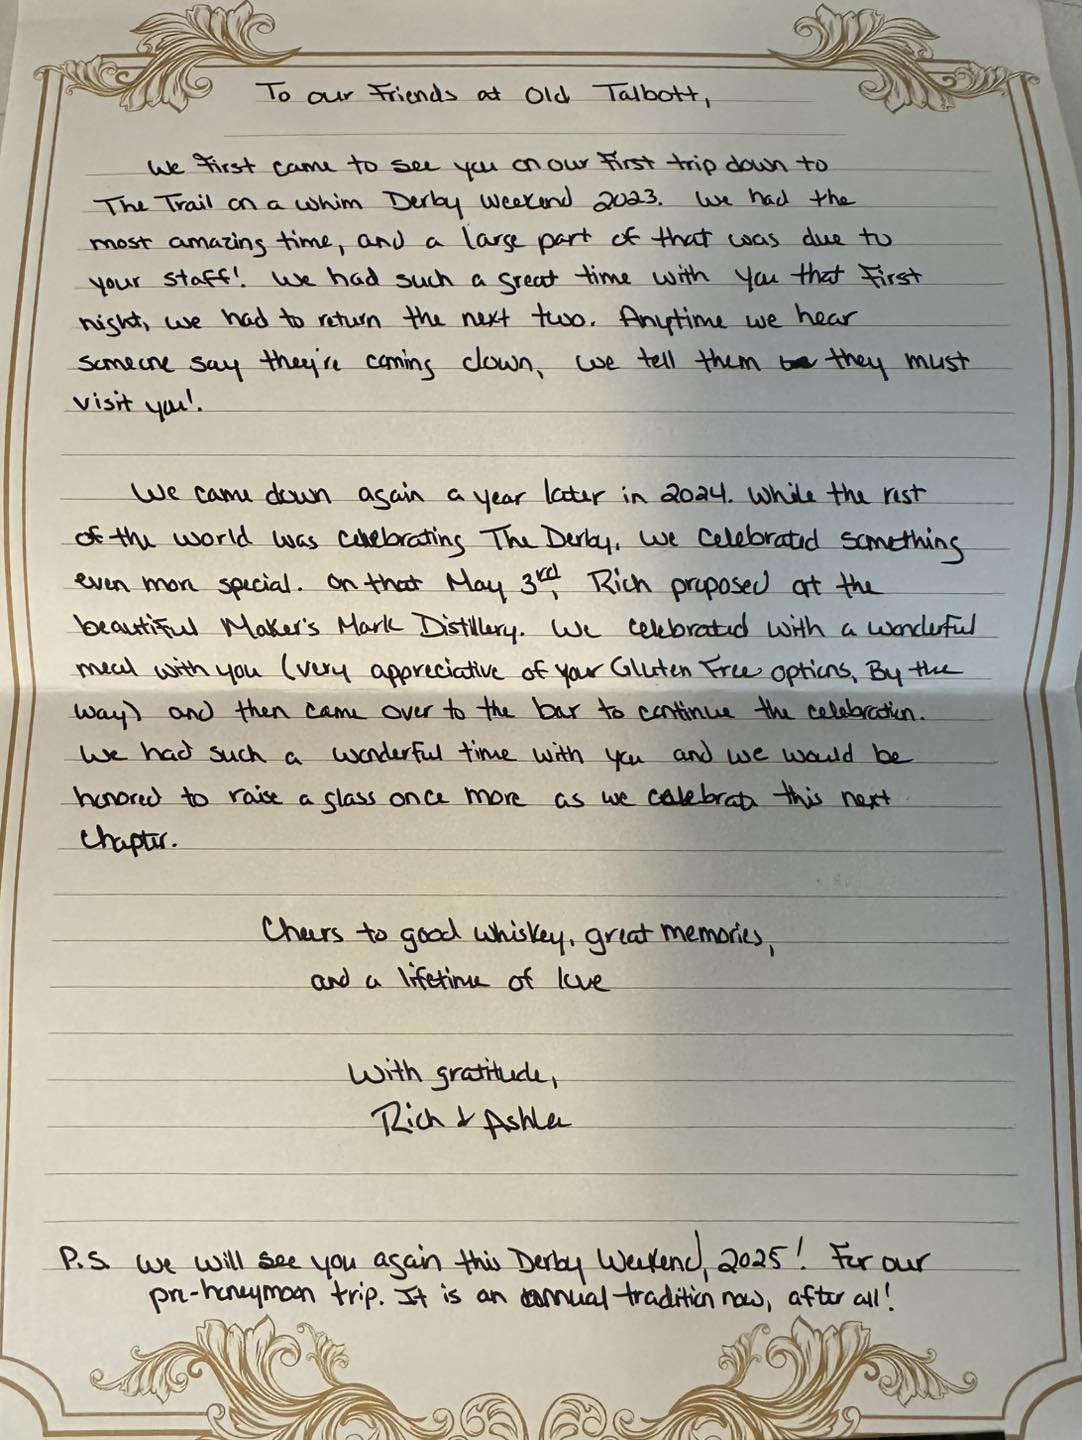 To our Friends at Old Talbott,
We First came to see you on our First trip down to
The Trail on a whim Derby Weekend 2023. We had the
most amazing time, and a large part of that was due to
your staff! We had such a great time with you that First
night, we had to return the next two. Anytime we hear
someone say they're coming down, we tell them they must
visit you!.
We came down again a year later in 2024. While the rest
of the world was celebrating The Derby, we celebrated something
even more special. On that May 3rd, Rich proposed at the
beautiful Maker's Mark Distillery. We celebrated with a wonderful
meal with you (very appreciative of your Gluten Free options, By the
way) and then came over to the bar to continue the celebration.
We had such a wonderful time with you and we would be
honored to raise a glass once more as we celebrate this next
chapter.
Cheers to good whiskey, great memories,
and a lifetime of love
With gratitude,
Rich & Ashlee
P.S. We will see you again this Derby Weekend, 2025! For our
pre-honeymoon trip. It is an annual tradition now, after all!